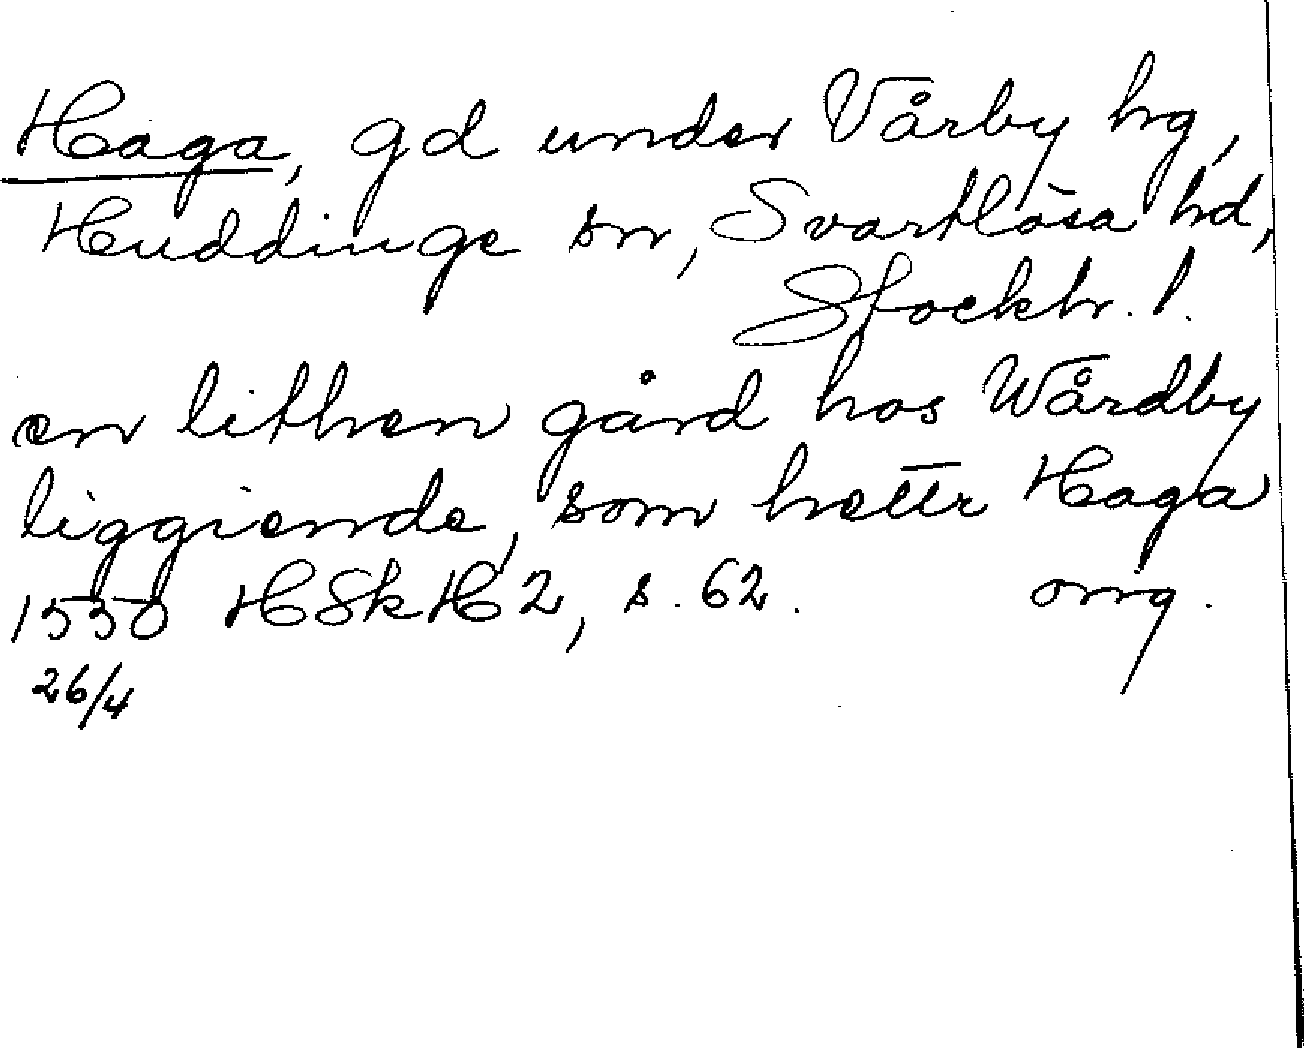 Haga, gd under Vårby hg,
Huddinge sn, Svartlösa hd,
Stockh. l.
en lithen gård hos Wårdby
liggiende, som hettr Haga
1550 HSkH 2, s. 62. orig.
26/4